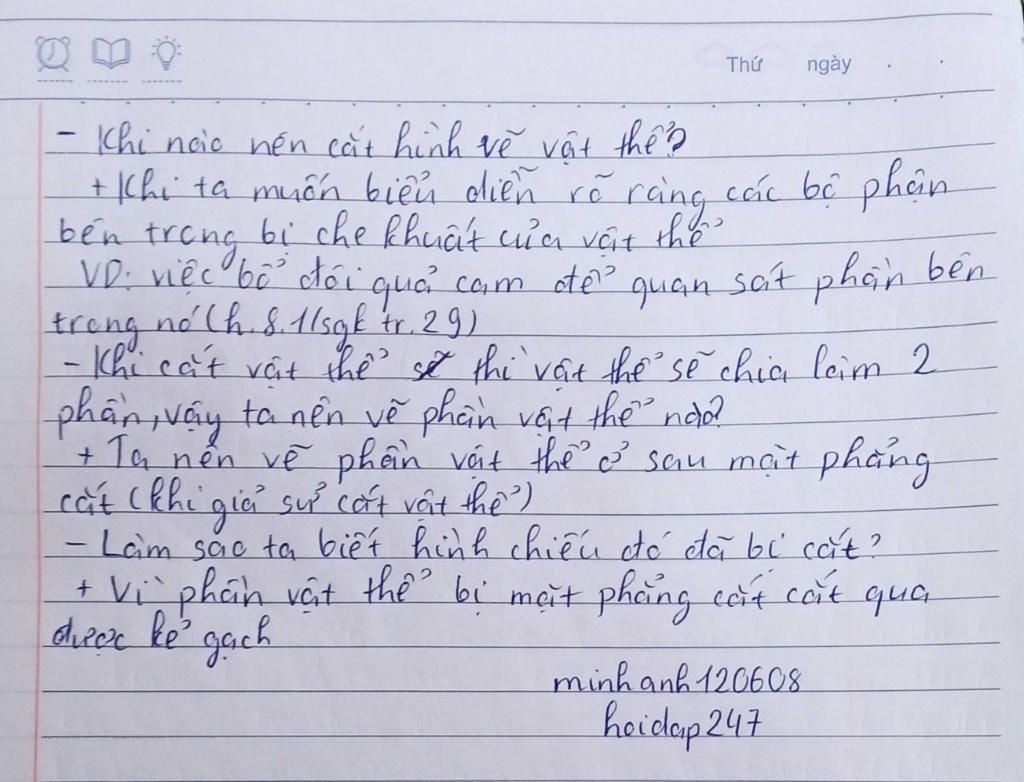 Thứ ngày . .
- Khi nào nên cắt hình vẽ vật thể?
+ Khi ta muốn biểu diễn rõ ràng các bộ phận
bên trong bị che khuất của vật thể
VD: việc bổ đôi quả cam để quan sát phần bên
trong nó (h.8.1/sgk tr.29)
- Khi cắt vật thể thì vật thể sẽ chia làm 2
phần, vậy ta nên vẽ phần vật thể nào?
+ Ta nên vẽ phần vật thể ở sau mặt phẳng
cắt (khi giả sử cắt vật thể)
- Làm sao ta biết hình chiếu đó đã bị cắt?
+ Vì phần vật thể bị mặt phẳng cắt cắt qua
được kẻ gạch
minhanh120608
hoidap247